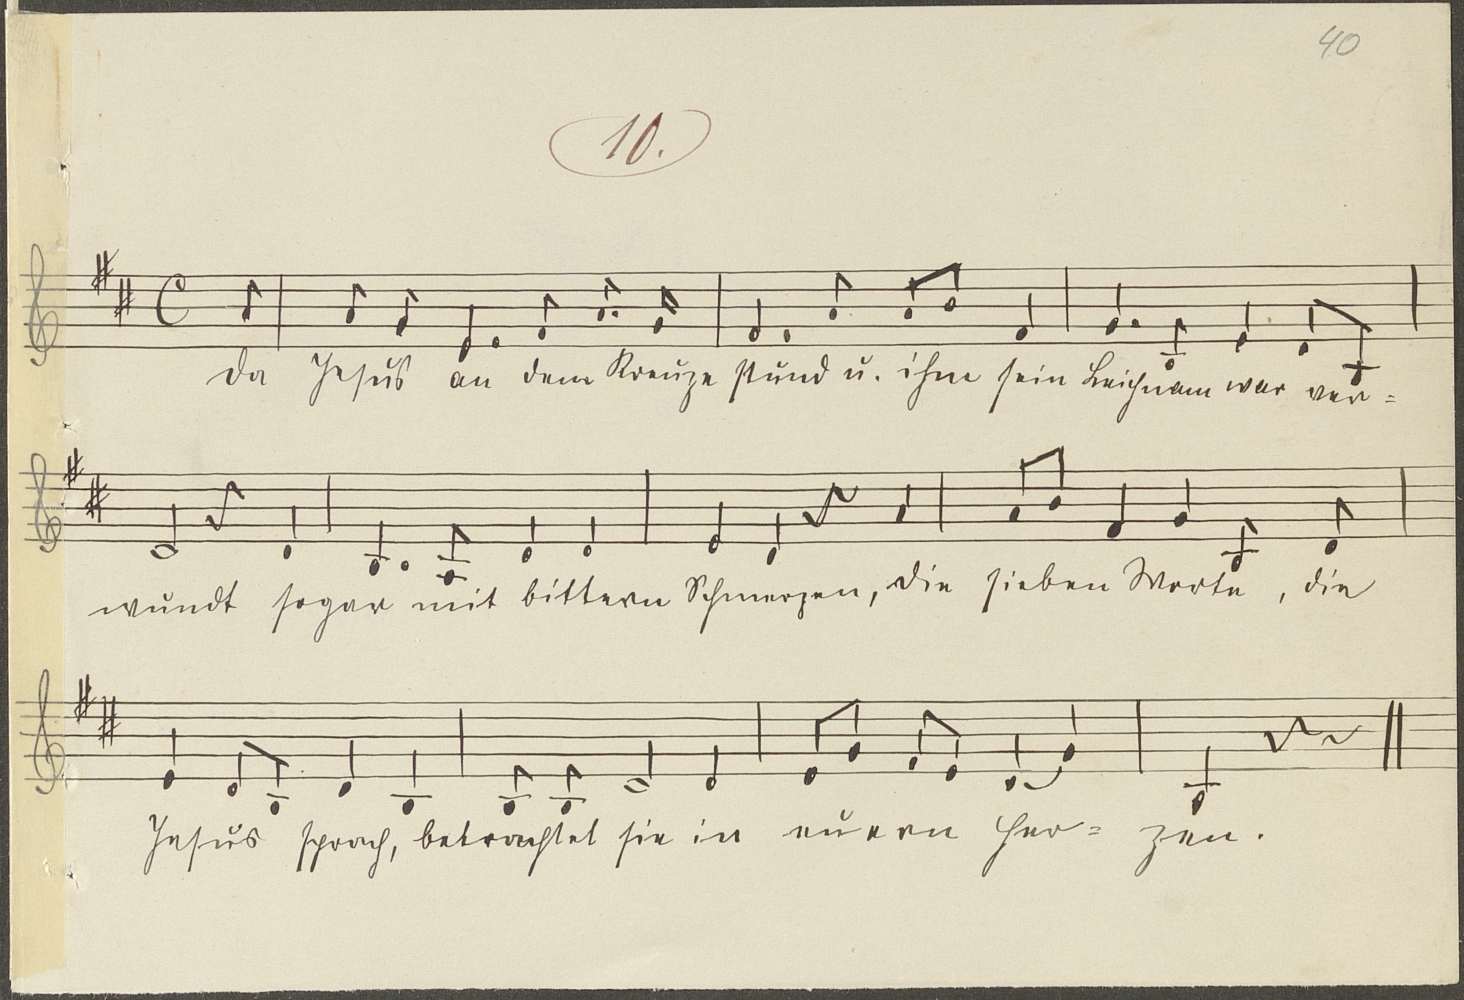 40
10.
Da Jesus an dem Kreuze stund u. ihm sein Leichnam war ver=
wundt sogar mit bittern Schmerzen, die sieben Worte, die
Jesus sprach, betrachtet sie in euern Her= zen.